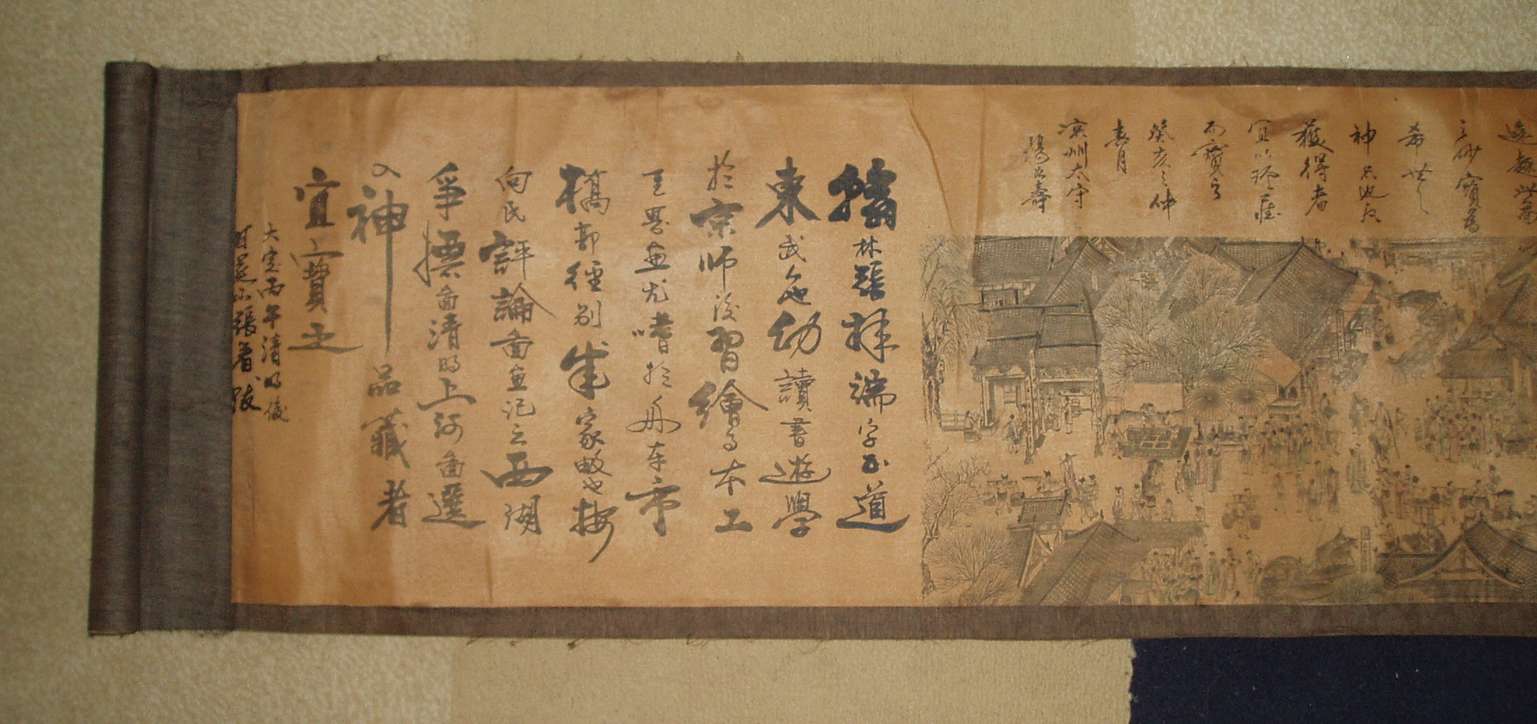 之妙實為
希世之
神品
獲得者
宜以珍藏
而寶之
癸亥之仲
春月
州太守
壽
翰林張擇端字正道
東武人也幼讀書遊學
於京師後習繪事本工
其界畫尤嗜於舟車市
橋郭徑別成家數也按
向氏評論圖畫記云西湖
爭標圖清明上河圖選
入神品藏者
宜寶之
大定丙午清明後
日燕山張著跋